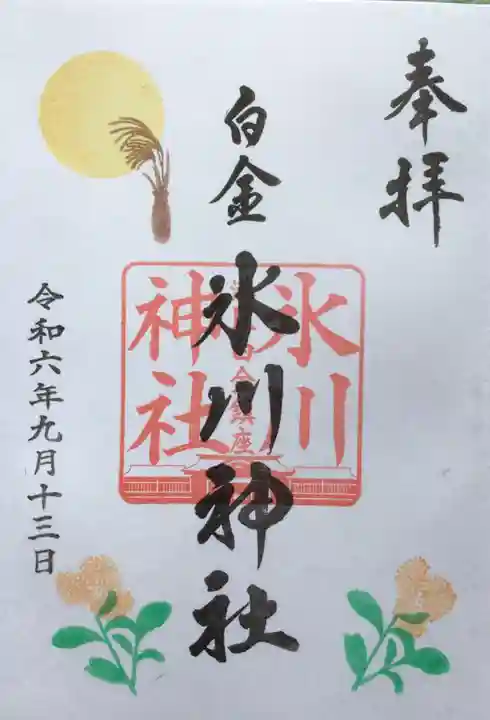 奉拝
白金
氷川神社
氷川
神社
鎮座
令和六年九月十三日